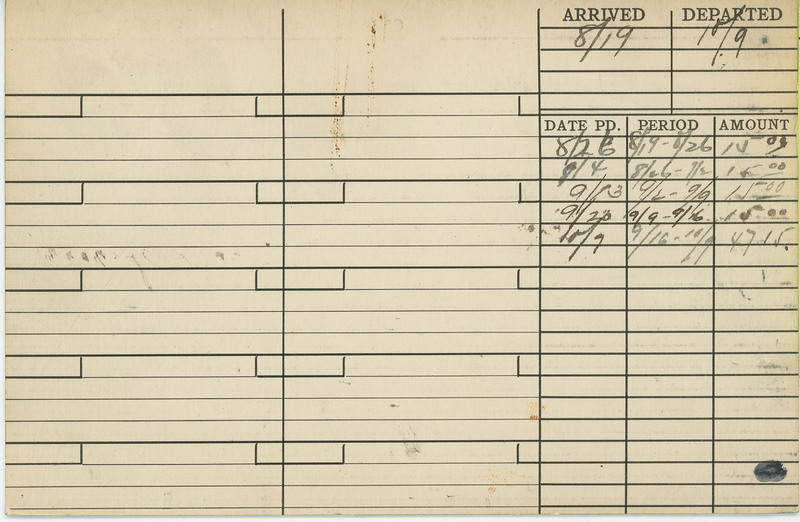 ARRIVED DEPARTED
8/19 10/9
DATE PD. PERIOD AMOUNT
8/26 8/19-8/26 15 00
9/4 8/26-9/2 15 00
9/13 9/2-9/9 15 00
9/20 9/9-9/16 15 00
10/9 9/16-10/9 47 15.